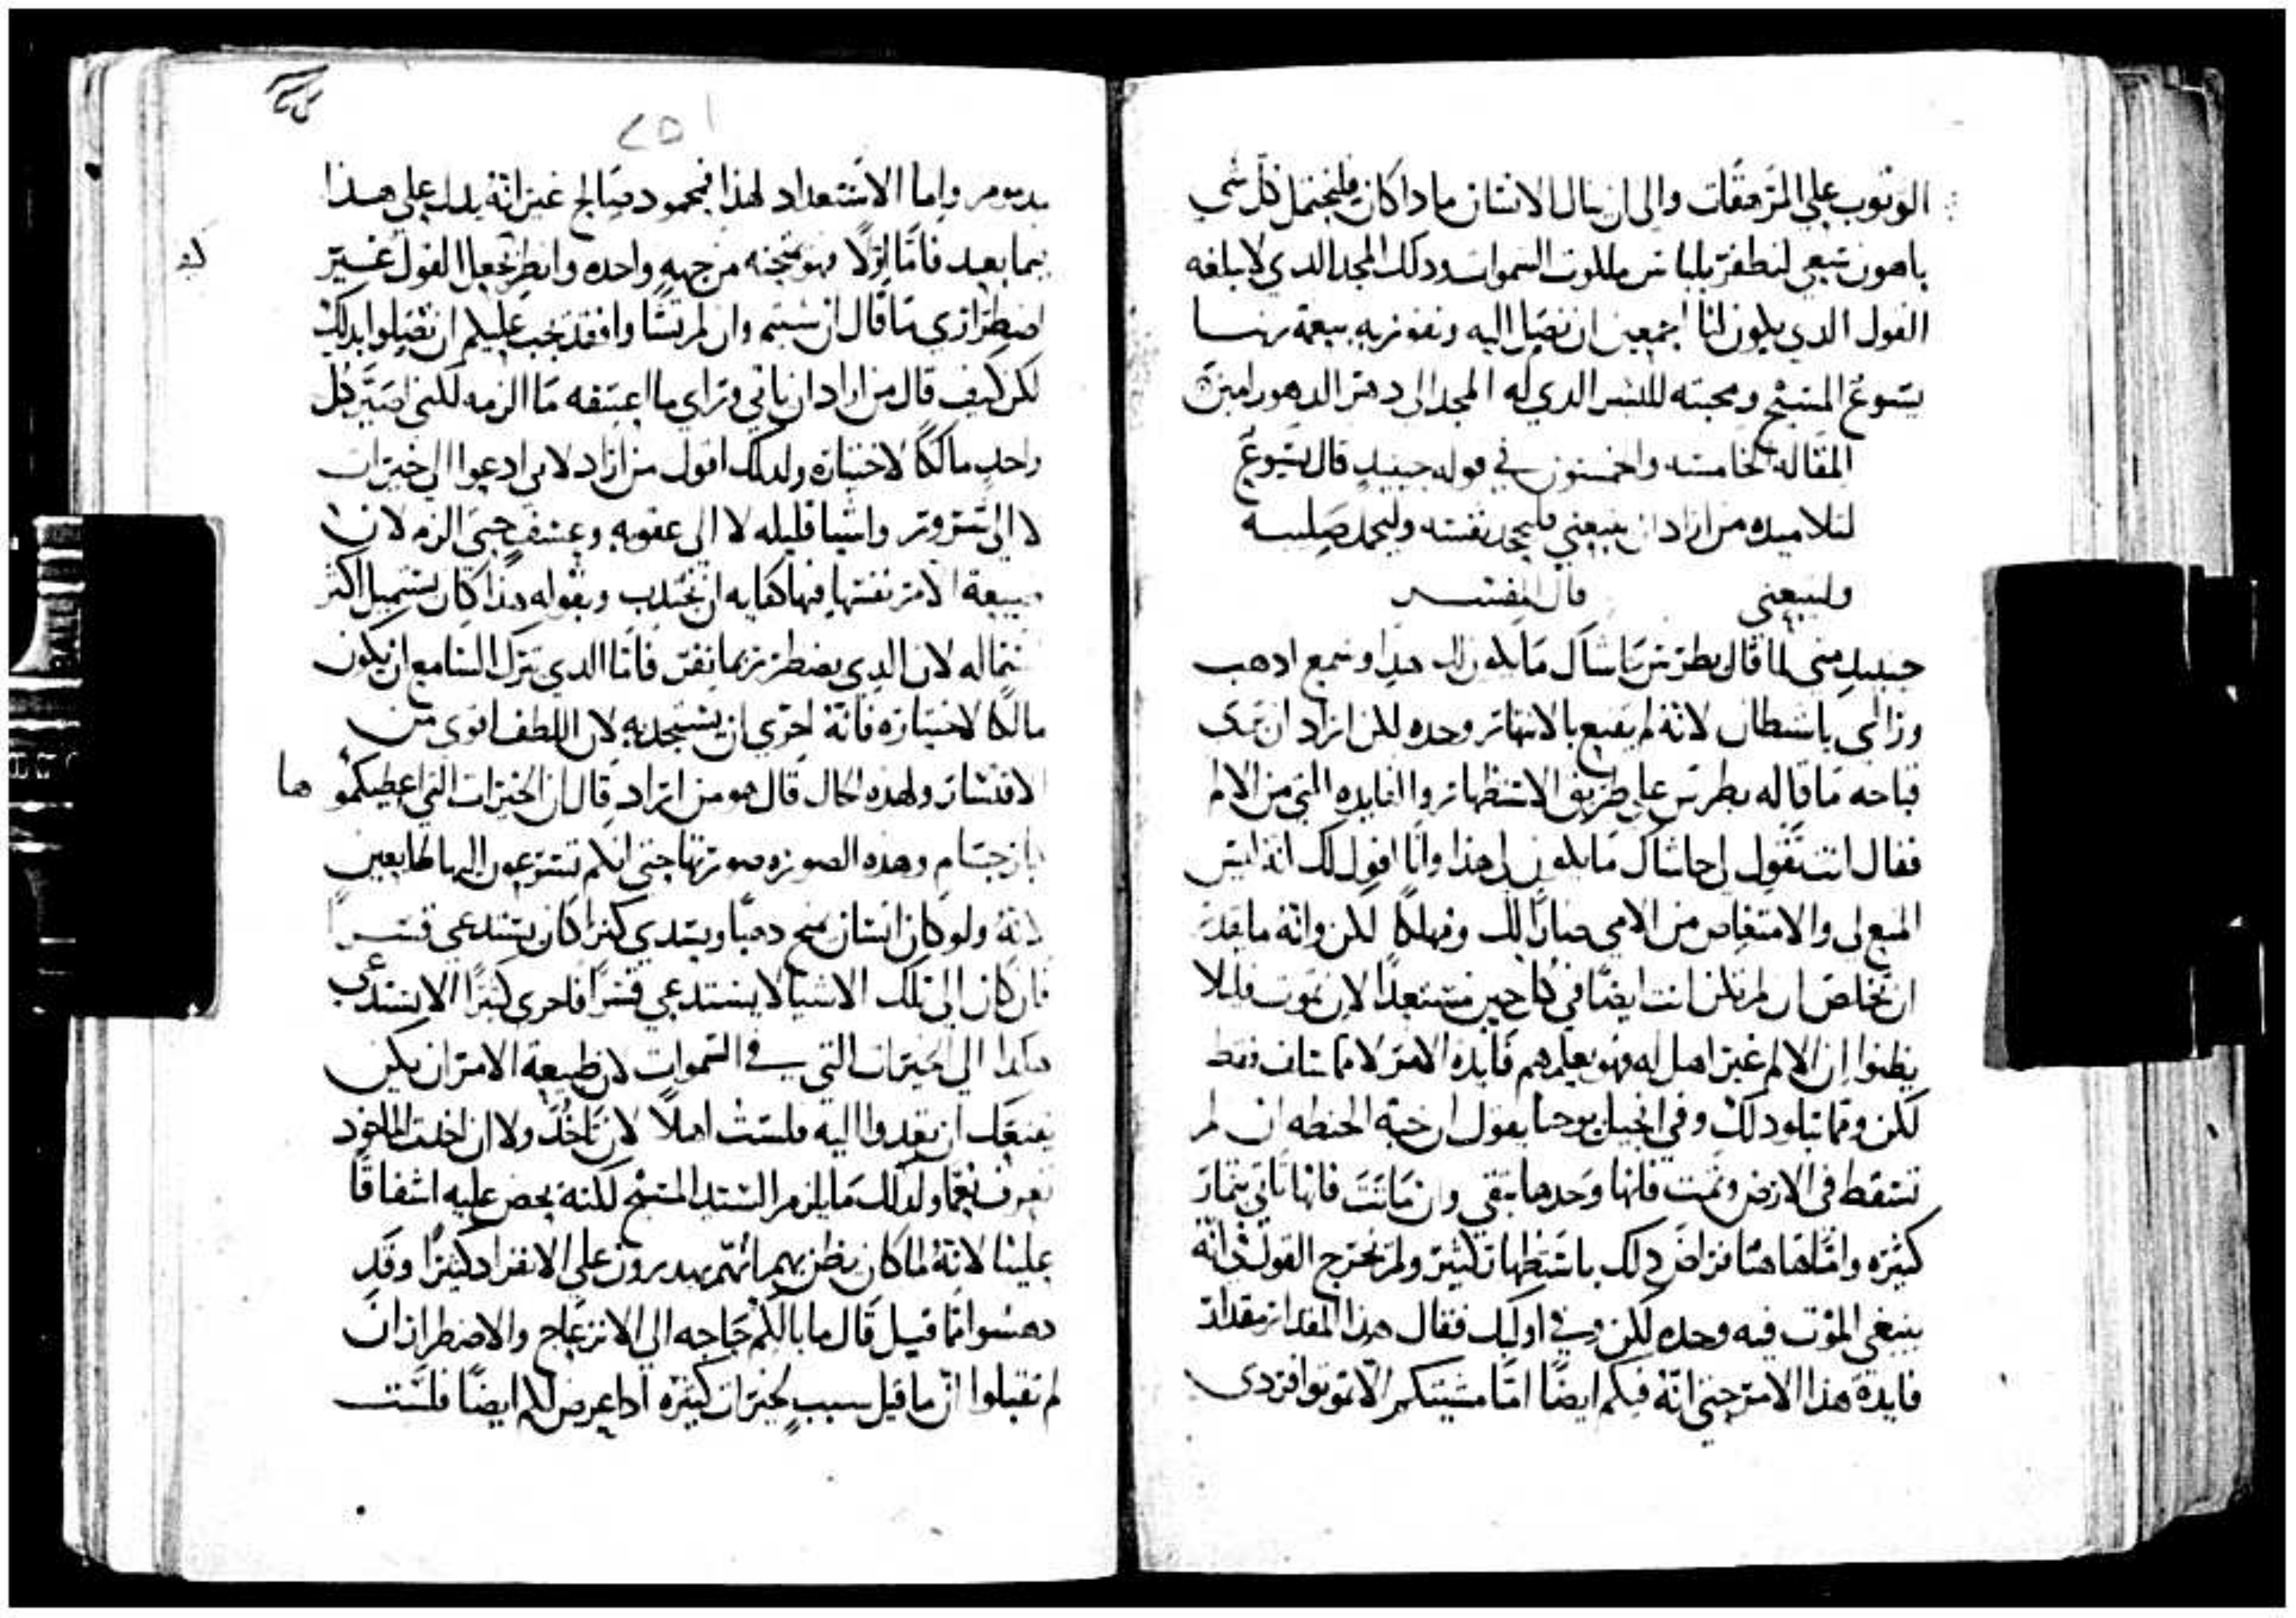 الوثوب على المرهقات والى ان ينال الانسان ماذا كان فليحتمل كل شي
باهون سعي لنظفر بلباس ملكوت السموات وذلك المجد الذي لا يبلغه
القول الذي يكون لنا اجمعين ان نصل اليه ونفوز به بنعمة ربنا
يسوع المسيح ومحبته للبشر الذي له المجد الى دهر الدهور امين
المقاله الخامسه والخمسون في قوله حينيذ قال يسوع
لتلاميذه من اراد ان يتبعني فليجحد نفسه وليحمل صليبه
وليتبعني قال المفسر
حينيذ متى لما قال بطرس حاشاك ما يكون لك هذا وسمع اذهب
وراي يا شيطان لانه لم يقنع بالانتهار وحده لكن اراد ان يرى
قباحه ما قاله بطرس على طريق الاستظهار والفايده التي من الالم
فقال انت تقول لي حاشاك ما يكون لك هذا وانا اقول لك انه ليس
المنع لي والامتعاض من الامي ضارا لك ومهلكا لكن وانه ما يمكنك
ان تخلص ان لم تكن انت ايضا في كل حين مستعدا لان تموت فليلا
يظنوا ان الالم غير اهل له فهو يعلمهم فايده الامر لا مما سلف فقط
لكن ومما يتلو ذلك وفي انجيل يوحنا يقول ان حبة الحنطه ان لم
تسقط في الارض وتمت فانها وحدها تبقى وان ماتت فانها تاتي بثمار
كثيره واما هاهنا فراض ذلك باستظهار كثير ولم يخرج القول في انه
ينبغي الموت فيه وحده لكن وفي اوليك فقال هذا المقدار مقدار
فايدة هذا الامر حتى انه فيكم ايضا اما مشيتكم الا تموتوا فردي
واما الاستعداد لهذا فمحمود صالح غير انه يدل على هذا
فيما بعد فاما اولا فهو يثبته من جهه واحده وانظر كيف جعل القول غير
اضطراري ما قال ان شيتم وان لم تشاوا فقد يجب عليكم ان تقبلوا ذلك
لكن كيف قال من اراد ان ياتي وراي ما اعسفه ما الزمه لكني اصير كل
واحد مالكا لاختياره ولذلك اقول من اراد لاني ادعوا الى خيرات
لا الى شرور واشيا قليله لا الى عقوبه وعسف حتى الزم لان
طبيعة الامر نفسها فيها كفايه ان تجتذب وبقوله هذا كان يستميل اكثر
لان الذي يضطر ربما ينفر فاما الذي يترك السامع ان يكون
مالكا لاختياره فانه احرى ان يستجذبه لان اللطف اقوى من
الاقتسار ولهذه الحال قال هو من اراد قال ان الخيرات التي اعطيكموها
جسام وهذه الصوره صورتها حتى انكم تسرعون اليها طايعين
لانه ولو كان انسان يمنح ذهبا ويسدي كنزا كان يستدعي قسرا
فان كان الى تلك الاشيا لا يستدعي قسرا فاحرى كثيرا الا يستدعي
هكذا الى الخيرات التي في السموات لان طبيعة الامر ان لم يكن
يقنعك ان تعدوا اليه فلست اهلا لان تاخذ ولا ان اخذت الماخوذ
تعرف نعما ولذلك ما يلزم السيد المسيح لكنه يحض عليه اشفاقا
علينا لانه لما كان يظن بهم انهم يهدرون على الانفراد كثيرا وقد
دهشوا مما قيل قال ما بالكم حاجه الى الانزعاج والاضطراب ان
لم تقبلوا ان ما قيل سبب لخيرات كثيره اذا عرض لكم ايضا فلست